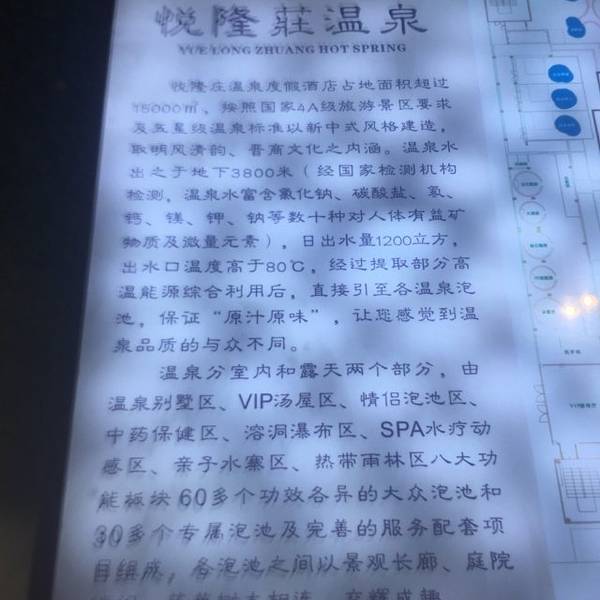 悦隆莊温泉
YUE LONG ZHUANG HOT SPRING
悦隆庄温泉度假酒店占地面积超过
15000㎡，按照国家4A级旅游景区要求
及五星级温泉标准以新中式风格建造，
取明风清韵、晋商文化之内涵。温泉水
出之于地下3800米（经国家检测机构
检测，温泉水富含氯化钠、碳酸盐、氡、
钙、镁、钾、钠等数十种对人体有益矿
物质及微量元素），日出水量1200立方，
出水口温度高于80℃，经过提取部分高
温能源综合利用后，直接引至各温泉泡
池，保证“原汁原味”，让您感觉到温
泉品质的与众不同。
温泉分室内和露天两个部分，由
温泉别墅区、VIP汤屋区、情侣泡池区、
中药保健区、溶洞瀑布区、SPA水疗动
感区、亲子水寨区、热带雨林区八大功
能板块60多个功效各异的大众泡池和
30多个专属泡池及完善的服务配套项
目组成，各泡池之间以景观长廊、庭院